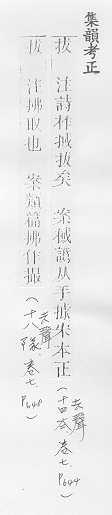 集韻考正
拔 注詩柞棫拔矣 案棫譌从手據宋本正
(去聲十四泰 卷七 P644)
拔 注拂取也 案類篇拂作撮
(去聲十八隊 卷七 P648)